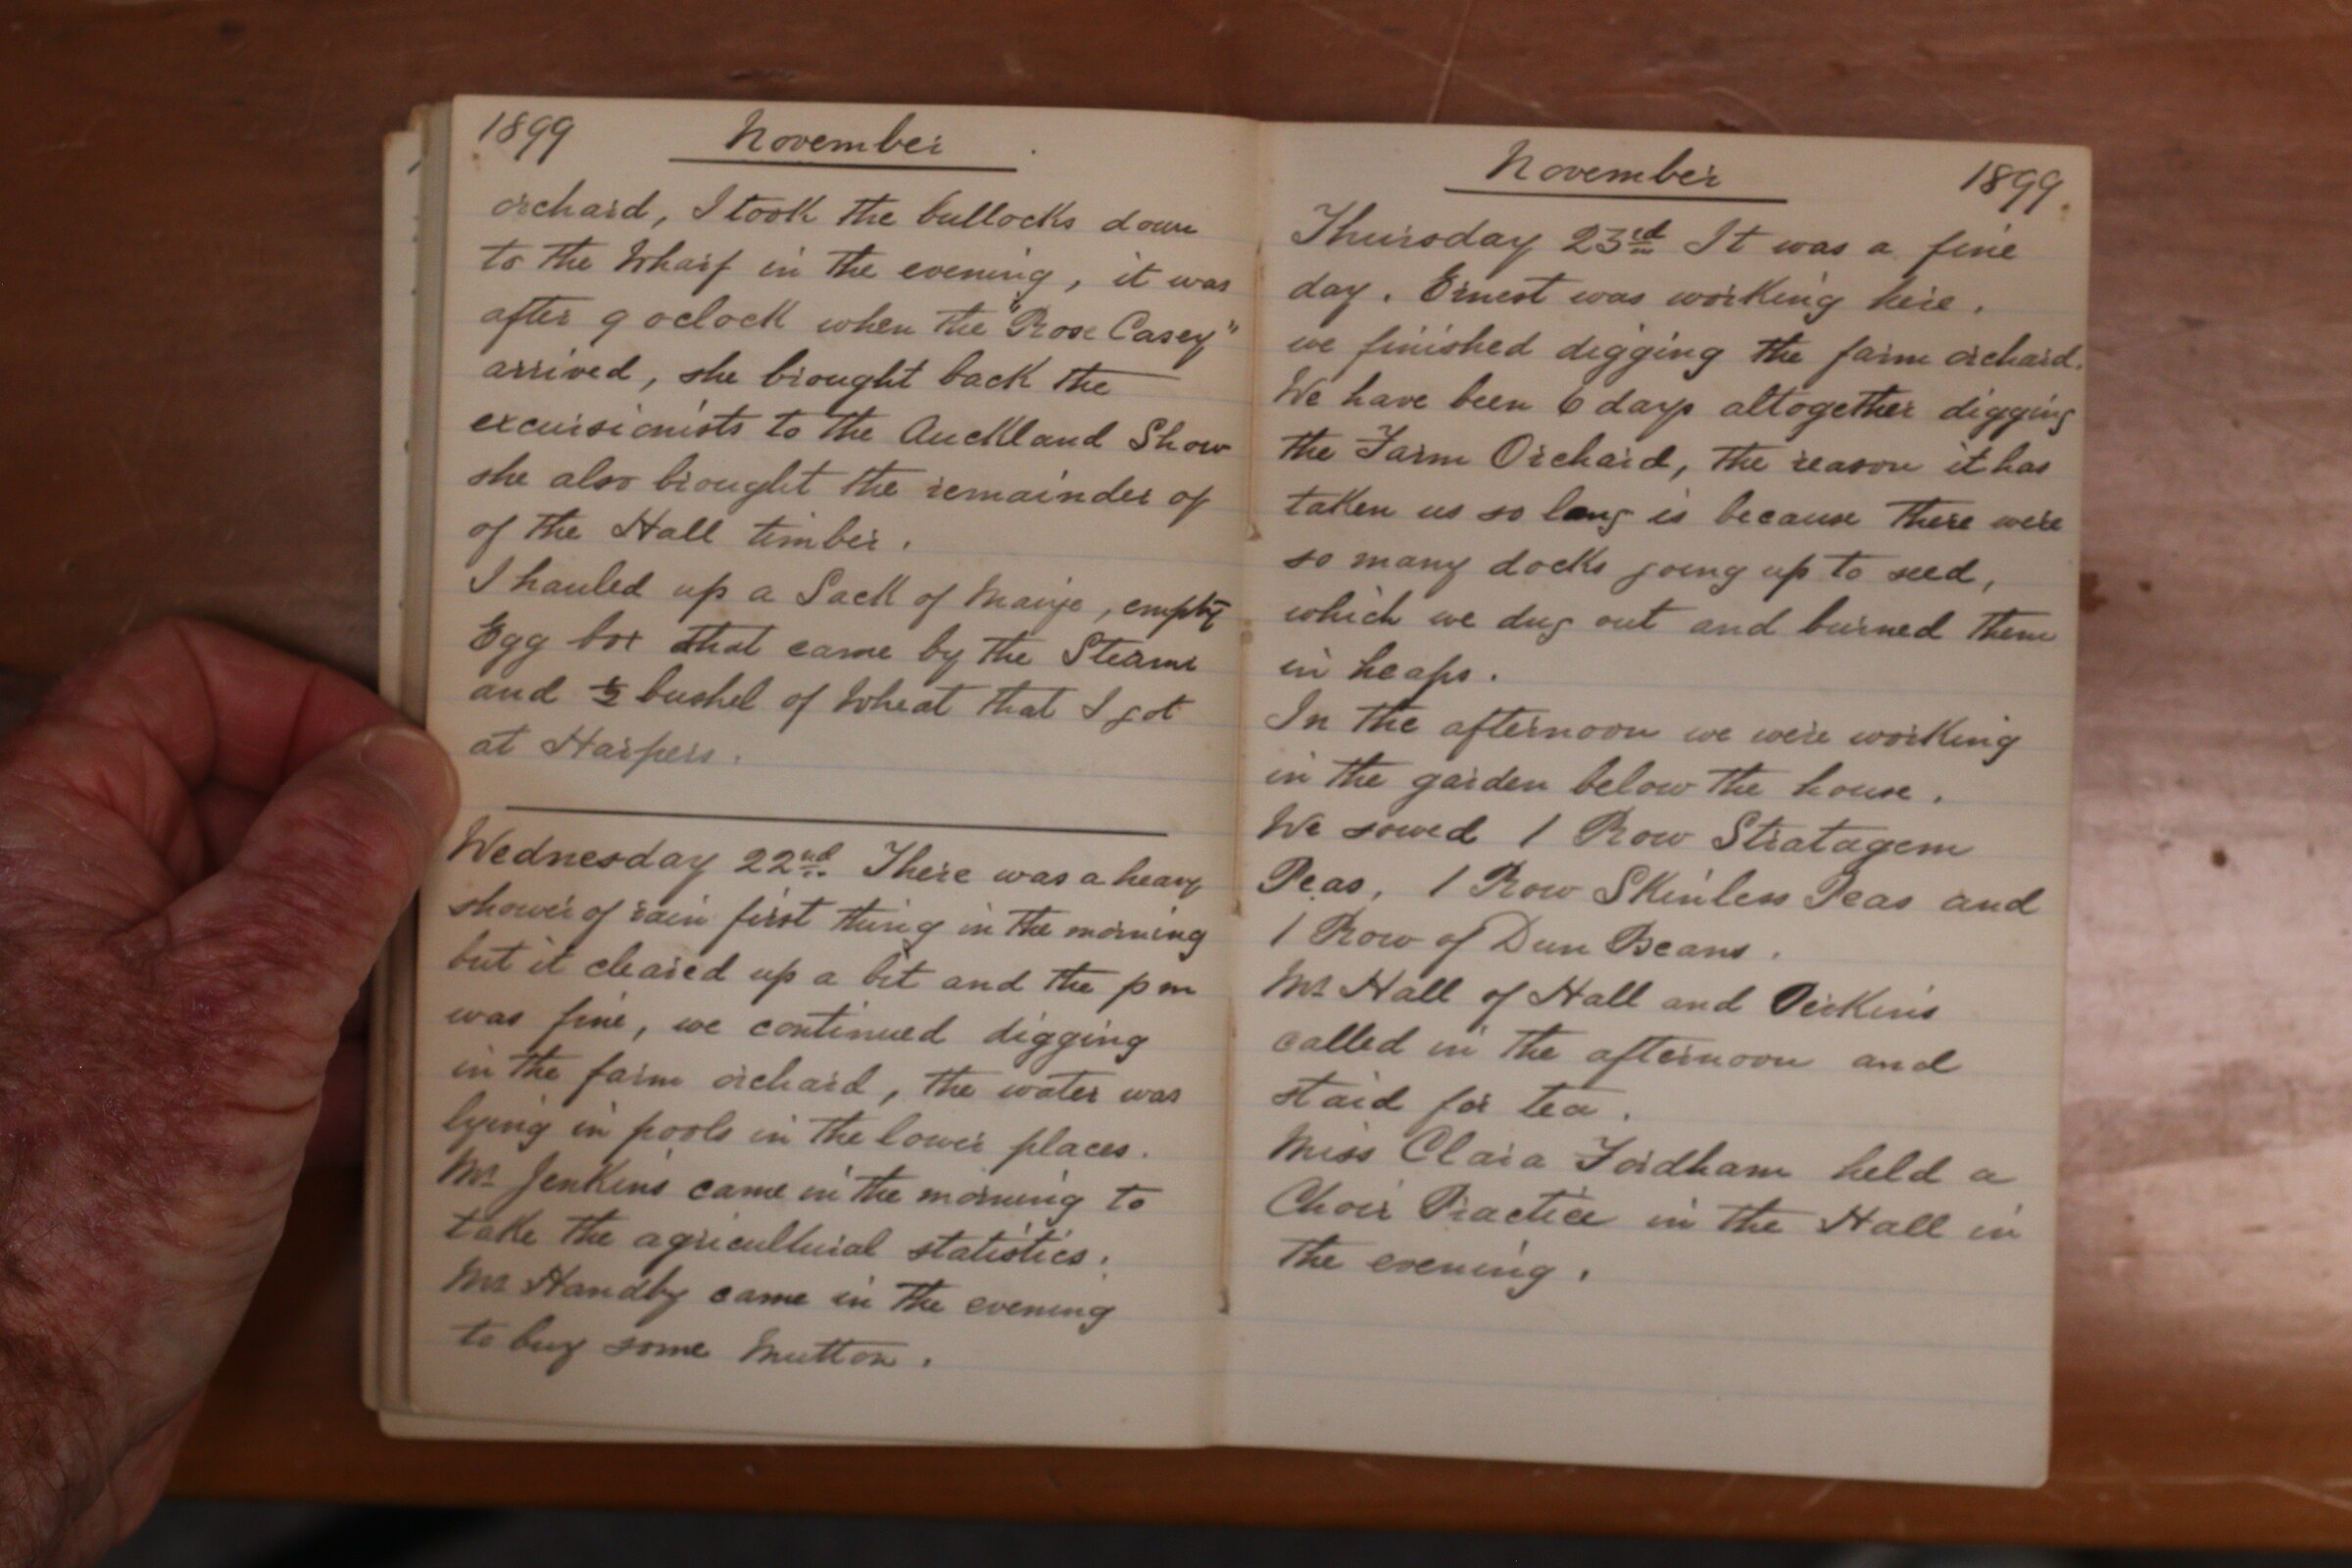 1899 November
orchard, I took the bullocks down
to the Wharf in the evening, it was
after 9 oclock when the "Rose Casey"
arrived, she brought back the
excursionists to the Auckland Show
she also brought the remainder of
of the Hall timber.
I hauled up a Sack of Maize, empty
Egg box that came by the Steamr
and ½ bushel of Wheat that I got
at Harpers.
Wednesday 22nd There was a heavy
shower of rain first thing in the morning
but it cleared up a bit and the pm
was fine, we continued digging
in the farm orchard, the water was
lying in pools in the lower places.
Mr Jenkins came in the morning to
take the agricultural statistics.
Mr Handby came in the evening
to buy some Mutton.
November 1899.
Thursday 23rd It was a fine
day. Ernest was working here.
we finished digging the farm orchard.
We have been 6 days altogether digging
the Farm Orchard, the reason it has
taken us so long is because there were
so many docks going up to seed,
which we dug out and burned them
in heaps.
In the afternoon we were working
in the garden below the house.
We sowed 1 Row Stratagem
Peas, 1 Row Skinless Peas and
1 Row of Dun Beans.
Mr Hall of Hall and Perkins
called in the afternoon and
staid for tea.
Miss Clara Fordham held a
Choir Practice in the Hall in
the evening.